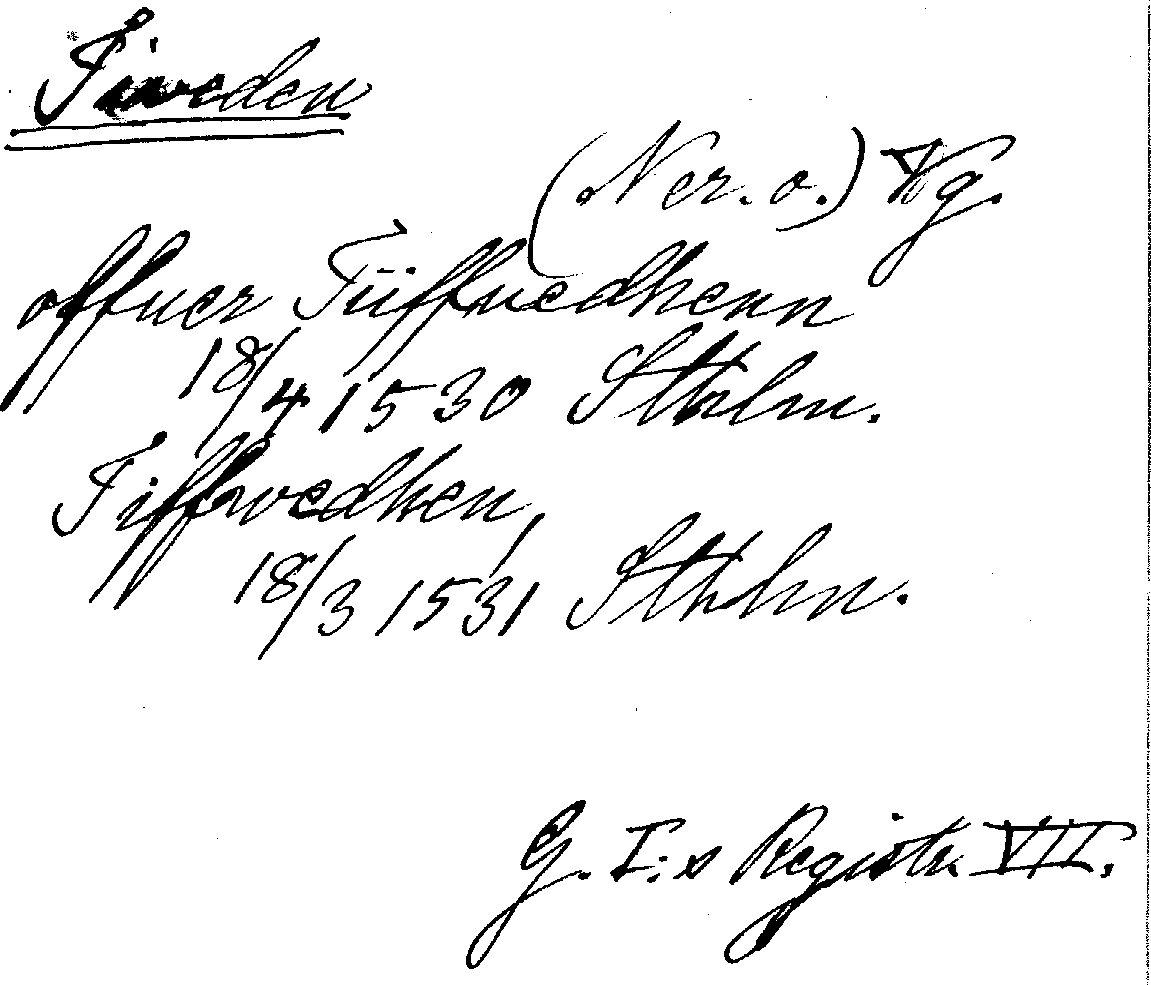 Tiveden
(Ner. o.) Vg.
offuer Tiiffuedhenn
18/4 1530 Sthlm.
Tiffwedhen,
18/3 1531 Sthlm.
G. I:s Registr. VII.